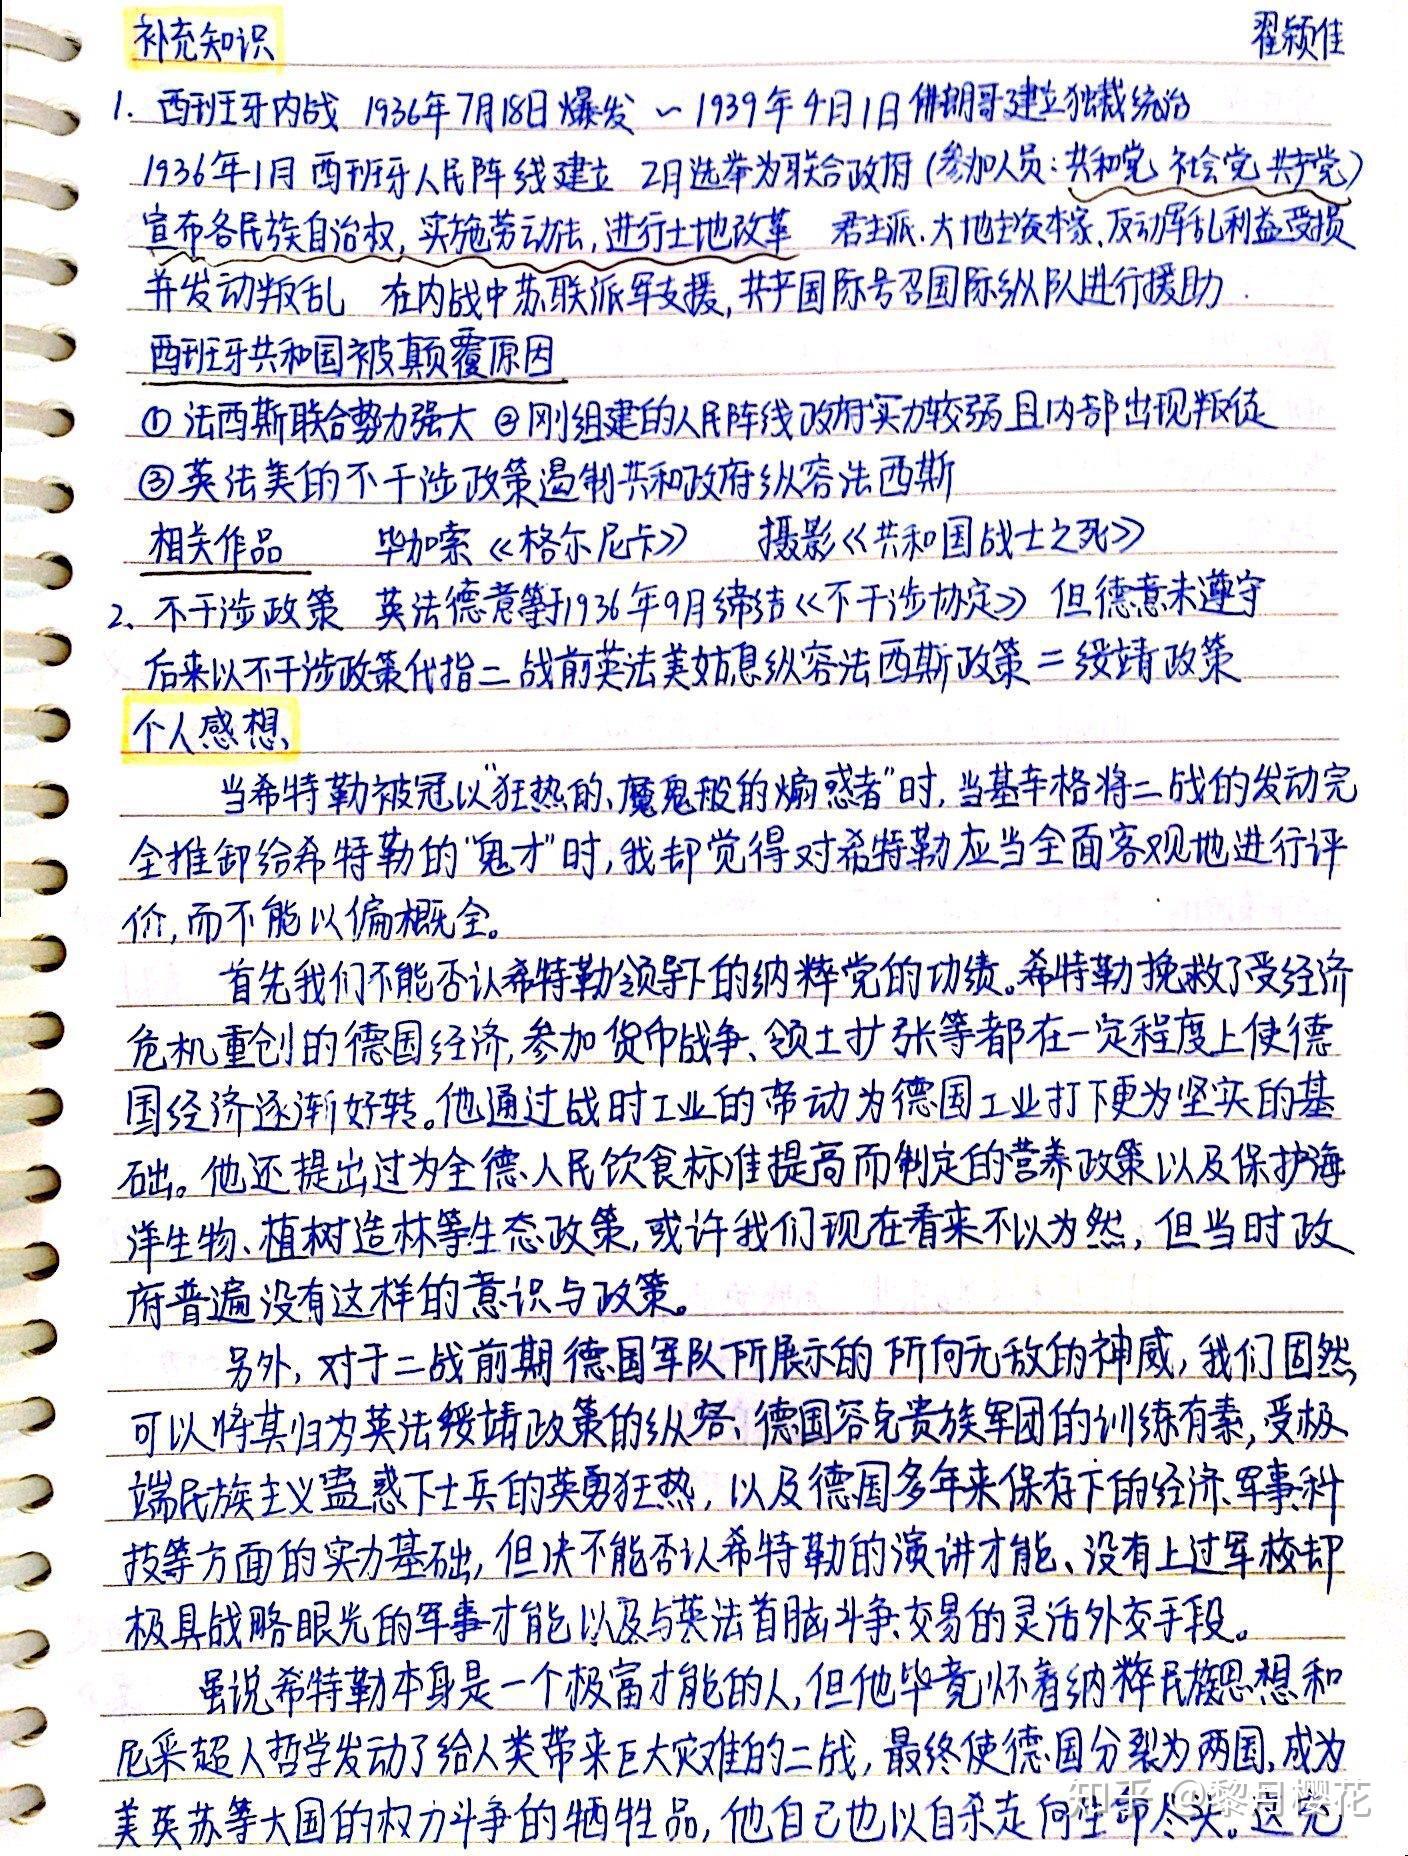 补充知识
翟颖佳
1. 西班牙内战 1936年7月18日爆发 ~ 1939年4月1日佛朗哥建立独裁统治
1936年1月西班牙人民阵线建立 2月选举为联合政府(参加人员:共和党 社会党 共产党)
宣布各民族自治权,实施劳动法,进行土地改革 君主派、大地主资本家、反动军队利益受损
并发动叛乱 在内战中苏联派军支援,共产国际号召国际纵队进行援助.
西班牙共和国被颠覆原因
①法西斯联合势力强大 ②刚组建的人民阵线政府实力较弱且内部出现叛徒
③英法美的不干涉政策遏制共和政府纵容法西斯
相关作品 毕加索《格尔尼卡》 摄影《共和国战士之死》
2、不干涉政策 英法德意等于1936年9月缔结《不干涉协定》 但德意未遵守
后来以不干涉政策代指二战前英法美姑息纵容法西斯政策=绥靖政策
个人感想、
当希特勒被冠以"狂热的、魔鬼般的煽惑者"时,当基辛格将二战的发动完
全推卸给希特勒的"鬼才"时,我却觉得对希特勒应当全面客观地进行评
价,而不能以偏概全。
首先我们不能否认希特勒领导下的纳粹党的功绩。希特勒挽救了受经济
危机重创的德国经济,参加货币战争、领土扩张等都在一定程度上使德
国经济逐渐好转。他通过战时工业的带动为德国工业打下更为坚实的基
础。他还提出过为全德人民饮食标准提高而制定的营养政策以及保护海
洋生物、植树造林等生态政策,或许我们现在看来不以为然,但当时政
府普遍没有这样的意识与政策。
另外,对于二战前期德国军队所展示的所向无敌的神威,我们固然
可以将其归为英法绥靖政策的纵容、德国容克贵族军团的训练有素,受极
端民族主义蛊惑下士兵的英勇狂热,以及德国多年来保存下的经济、军事科
技等方面的实力基础,但决不能否认希特勒的演讲才能、没有上过军校却
极具战略眼光的军事才能以及与英法首脑斗争交易的灵活外交手段。
虽说希特勒本身是一个极富才能的人,但他毕竟怀着纳粹民族思想和
尼采超人哲学发动了给人类带来巨大灾难的二战,最终使德国分裂为两国,成为
美英苏等大国的权力斗争的牺牲品,他自己也以自杀走向生命尽头。这充
知乎 @黎月樱花